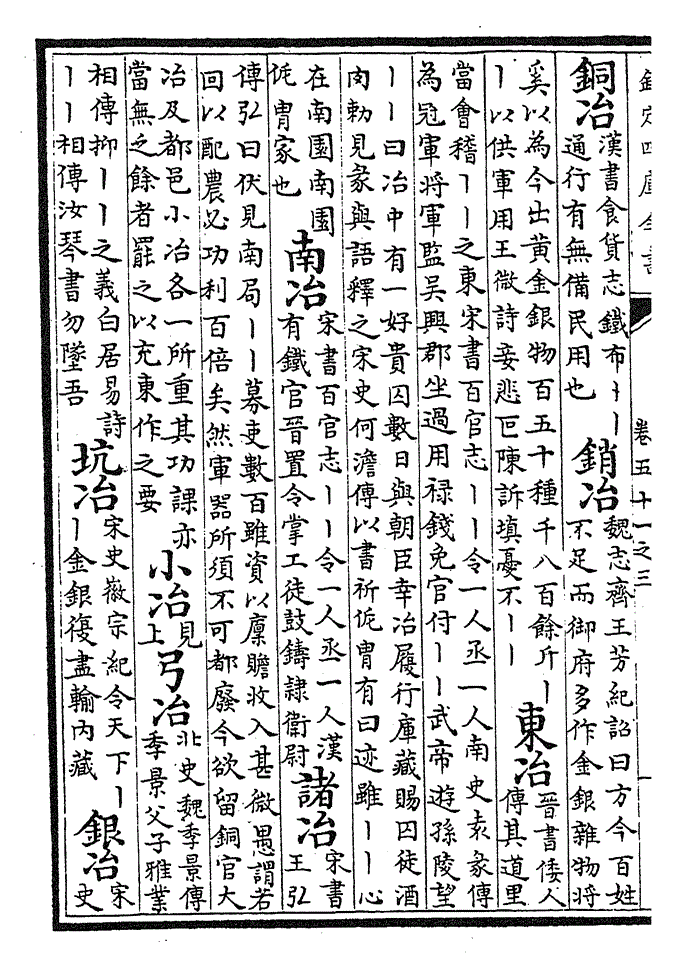 欽定四庫全書
卷五十一之三
銅冶
漢書食貨志鐵布丨丨
通行有無備民用也
銷冶
魏志齊王芳紀詔曰方今百姓
不足而御府多作金銀雜物將
奚以為今出黃金銀物百五十種千八百餘斤丨
丨以供軍用王微詩妾悲叵陳訴填憂不丨丨
東冶
晉書倭人
傳其道里
當會稽丨丨之東宋書百官志丨丨令一人丞一人南史袁彖傳
為冠軍將軍監吳興郡坐過用祿錢免官付丨丨武帝遊孫陵望
丨丨曰冶中有一好貴囚數日與朝臣幸冶履行庫藏賜囚徒酒
肉勅見彖與語釋之宋史何澹傳以書祈侂胄有曰迹雖丨丨心
在南園南園
侂胄家也
南冶
宋書百官志丨丨令一人丞一人漢
有鐵官晉置令掌工徒鼓鑄隷衛尉
諸冶
宋書
王弘
傳弘曰伏見南局丨丨募吏數百雖資以廩贍收入甚微愚謂若
回以配農必功利百倍矣然軍器所須不可都廢今欲留銅官大
冶及都邑小冶各一所重其功課亦
當無乏餘者罷之以充東作之要
小冶
見
上
弓冶
北史魏季景傳
季景父子雅業
相傳抑丨丨之義白居易詩
丨丨相傳汝琴書勿墜吾
坑冶
宋史徽宗紀令天下丨
丨金銀復盡輸内藏
銀冶
宋
史